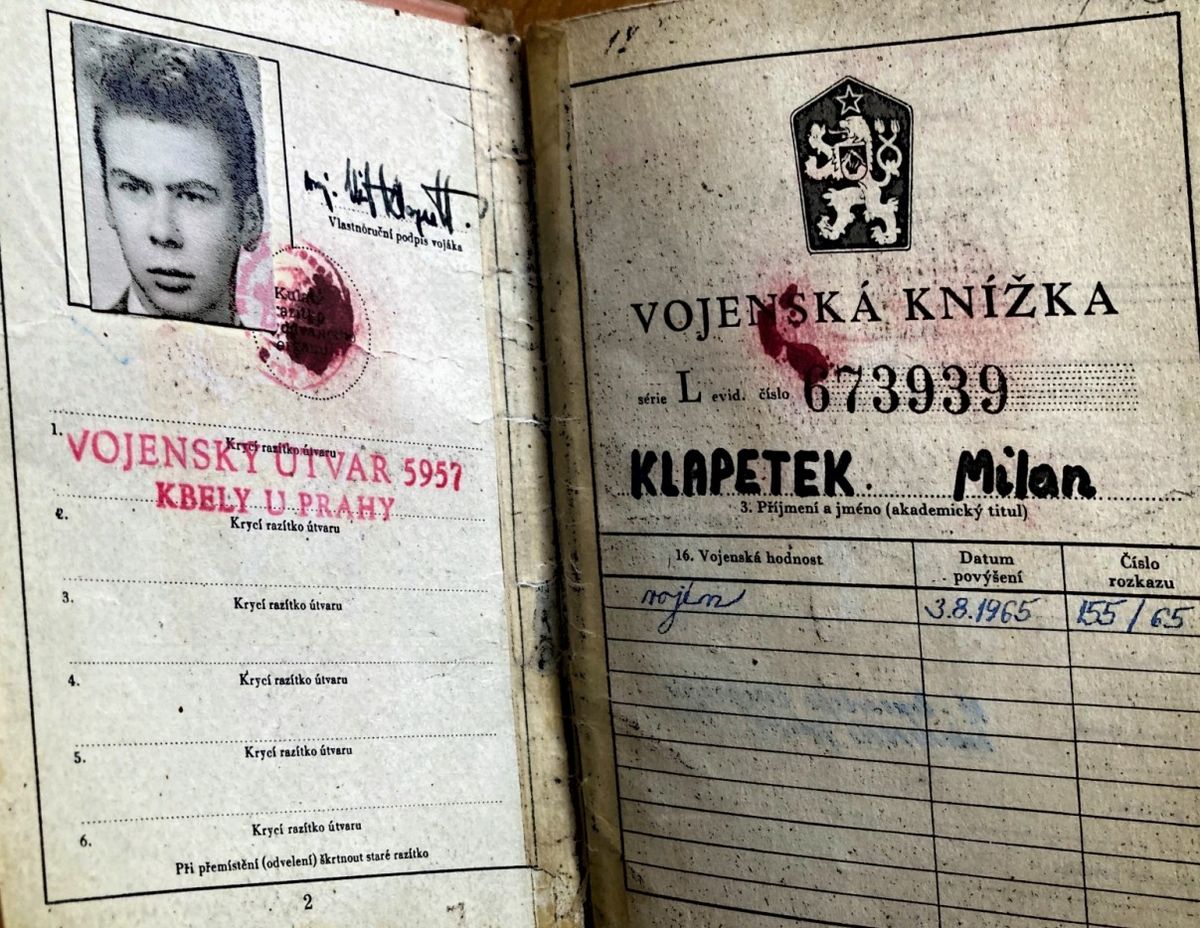 Vlastnoruční podpis vojáka
Kulaté
razítko
odvodního
orgánu
1.
Krycí razítko útvaru
VOJENSKÝ ÚTVAR 5957
KBELY U PRAHY
2.
Krycí razítko útvaru
3.
Krycí razítko útvaru
4.
Krycí razítko útvaru
5.
Krycí razítko útvaru
6.
Krycí razítko útvaru
Při přemístění (odvelení) škrtnout staré razítko
2
VOJENSKÁ KNÍŽKA
série L evid. číslo 673939
KLAPETEK Milan
3. Příjmení a jméno (akademický titul)
16. Vojenská hodnost
Datum
povýšení
Číslo
rozkazu
vojín
3.8.1965
155/65